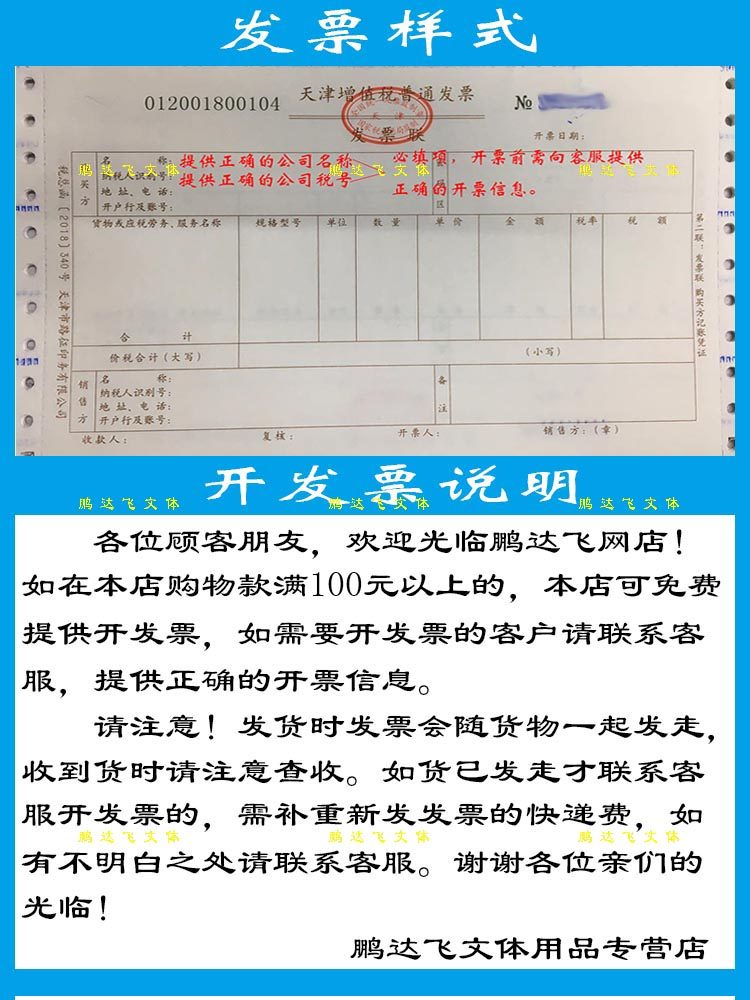 发票样式
012001800104
天津增值税普通发票
№
全国统一发票监制章
天津
国家税务总局监制
发票联
开票日期：
税总函〔2018〕340号 天津市路征印务有限公司
购买方
名称：提供正确的公司名称
纳税人识别号：提供正确的公司税号
地址、电话：
开户行及账号：
必填项，开票前需向客服提供
正确的开票信息。
区
货物或应税劳务、服务名称 规格型号 单位 数量 单价 金额 税率 税额
合计
价税合计（大写） （小写）
销售方
名称：
纳税人识别号：
地址、电话：
开户行及账号：
备注
收款人： 复核： 开票人： 销售方：（章）
第二联：发票联 购买方记账凭证
开发票说明
鹏达飞文体 鹏达飞文体 鹏达飞文体
各位顾客朋友，欢迎光临鹏达飞网店！
如在本店购物款满100元以上的，本店可免费
提供开发票，如需要开发票的客户请联系客
服，提供正确的开票信息。
请注意！发货时发票会随货物一起发走，
收到货时请注意查收。如货已发走才联系客
服开发票的，需补重新发发票的快递费，如
鹏达飞文体 鹏达飞文体 鹏达飞文体
有不明白之处请联系客服。谢谢各位亲们的
光临！
鹏达飞文体用品专营店